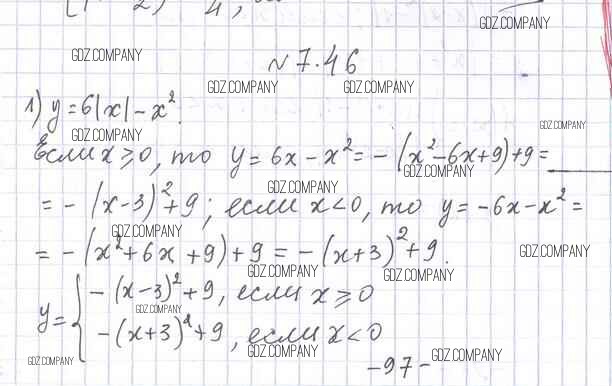 GDZ.COMPANY
GDZ.COMPANY
№ 7.46
GDZ.COMPANY GDZ.COMPANY
1) y = 6|x| - x².
GDZ.COMPANY GDZ.COMPANY
Если x ≥ 0, то y = 6x - x² = - (x² - 6x + 9) + 9 =
GDZ.COMPANY
GDZ.COMPANY
= - (x-3)² + 9; если x < 0, то y = -6x - x² =
GDZ.COMPANY
= - (x² + 6x + 9) + 9 = - (x+3)² + 9.
GDZ.COMPANY
GDZ.COMPANY GDZ.COMPANY
y = { - (x-3)² + 9, если x ≥ 0
GDZ.COMPANY
- (x+3)² + 9, если x < 0
GDZ.COMPANY GDZ.COMPANY GDZ.COMPANY
-97-